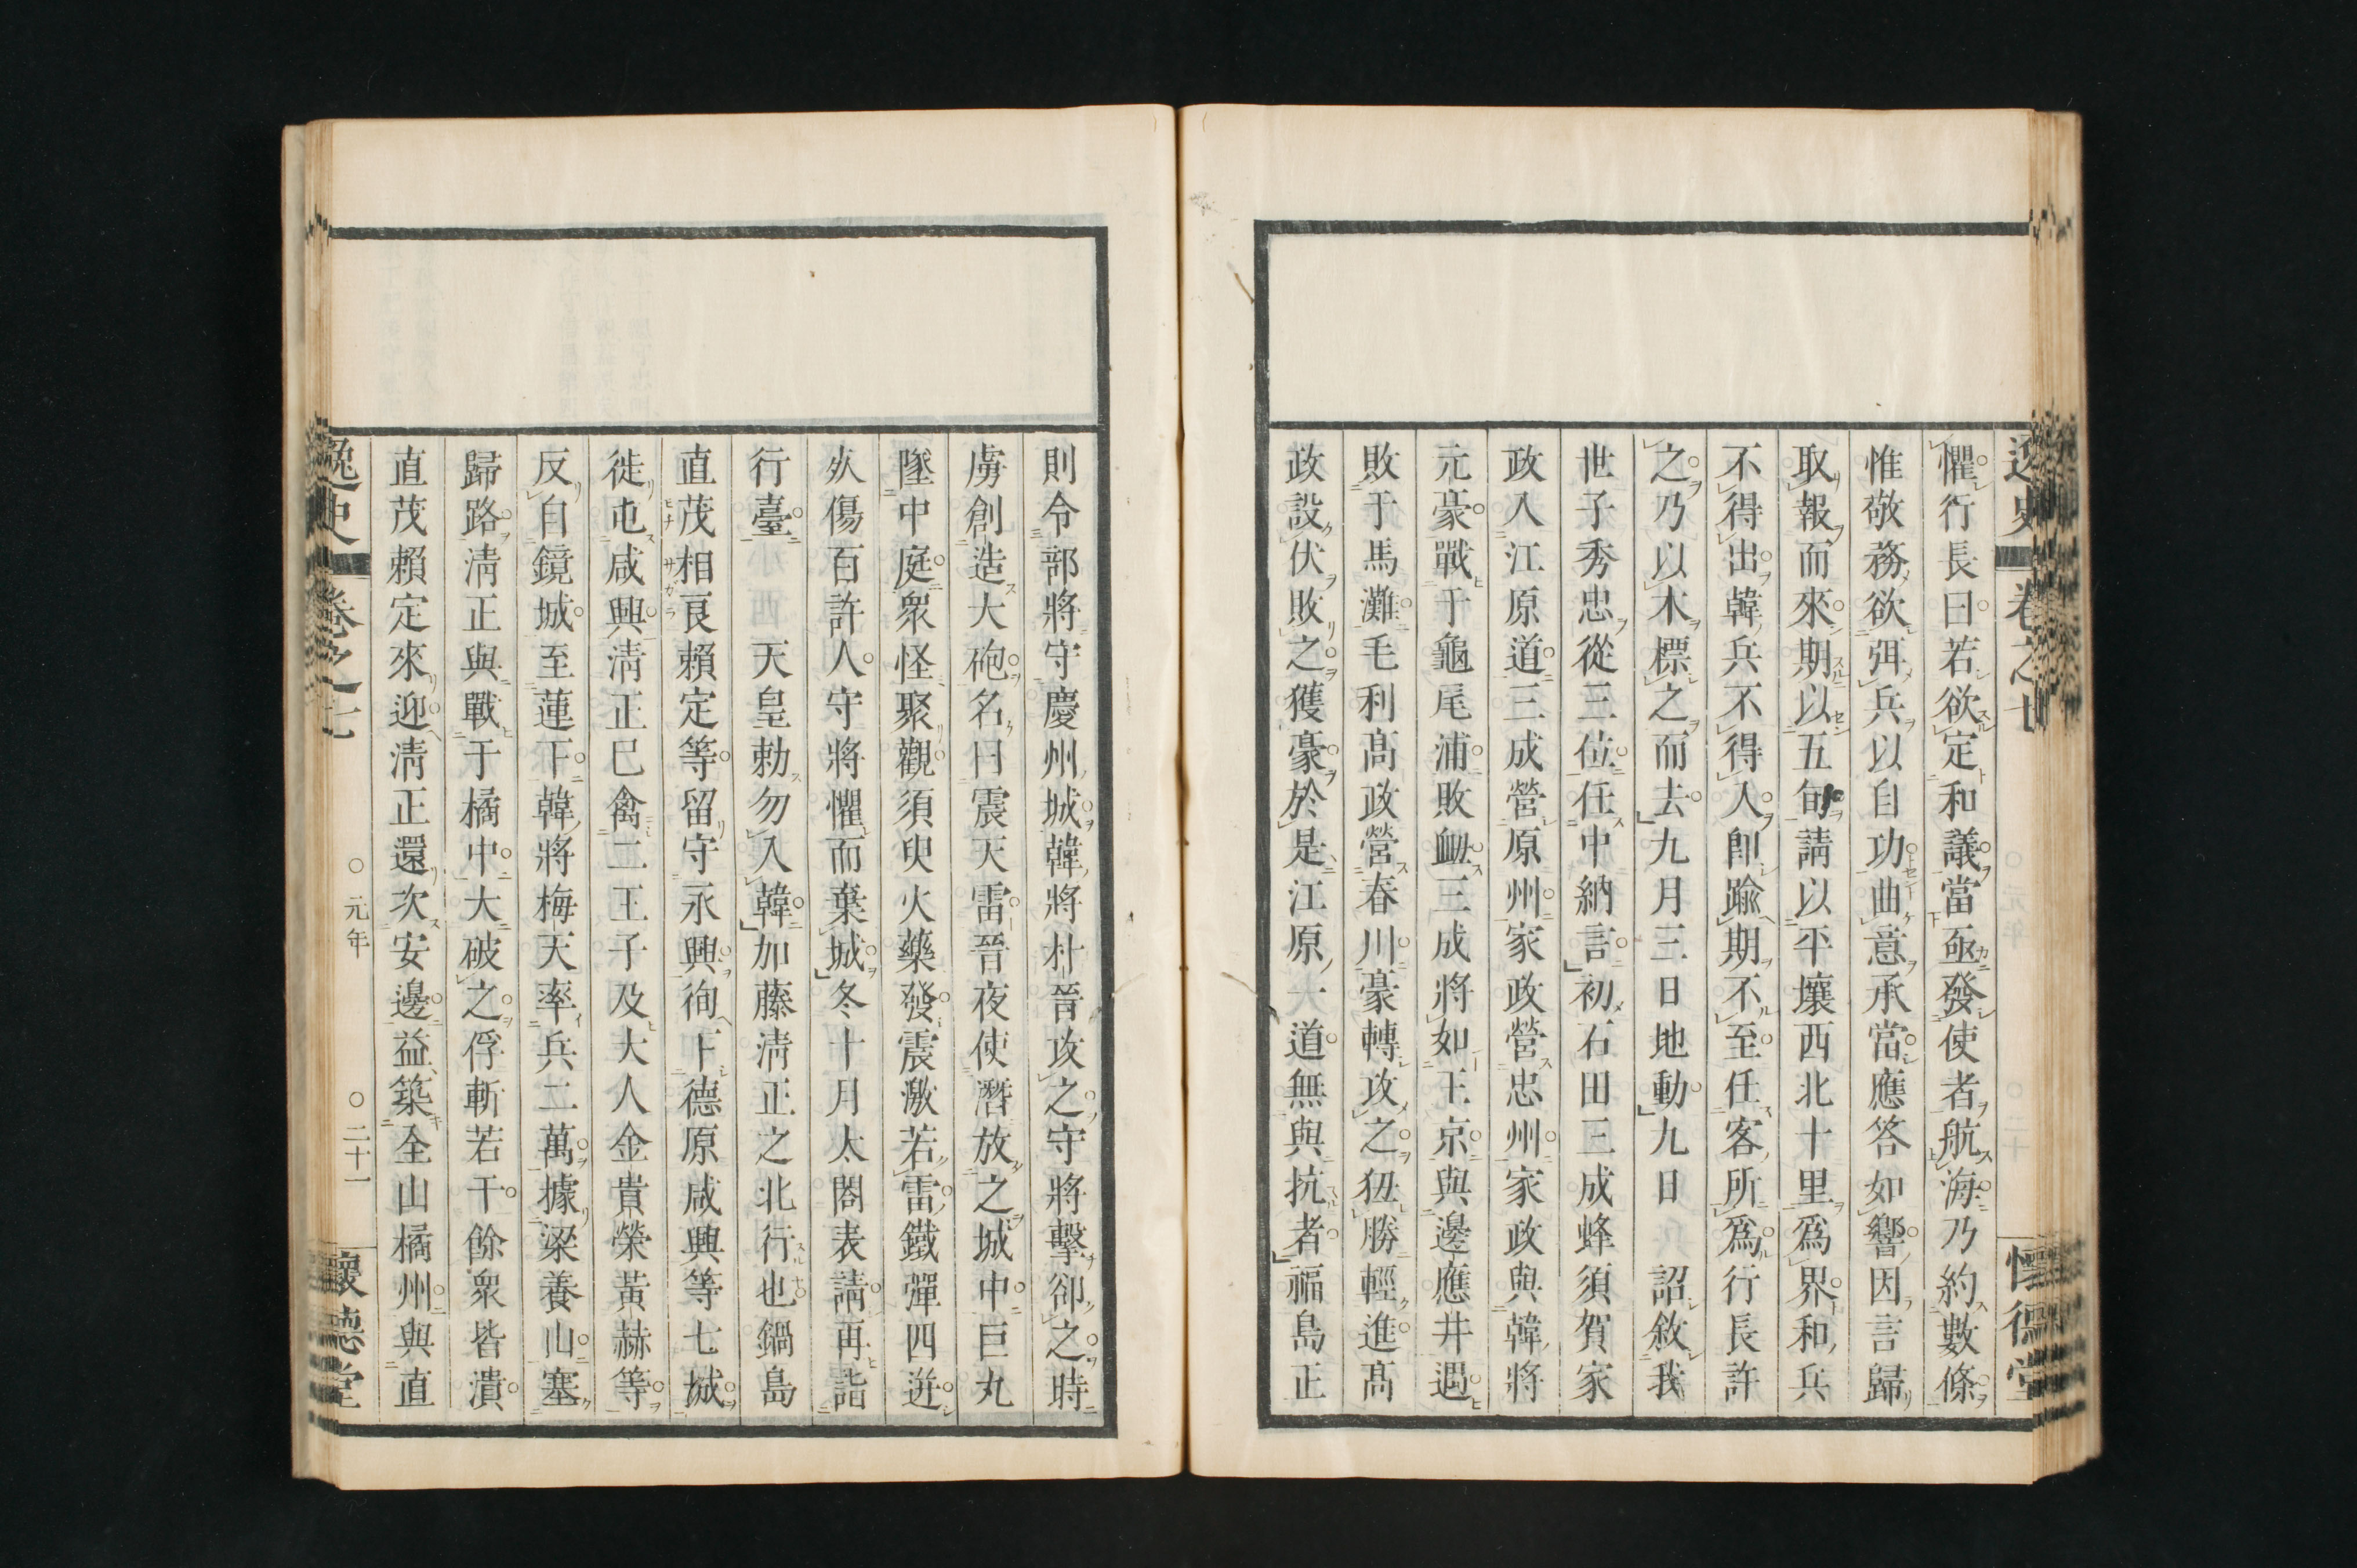 懼行長曰若欲定和議當亟發使者航海乃約數條
惟敬務欲弭兵以自功曲意承當應答如響因言歸
取報而來期以五旬請以平壤西北十里爲界和兵
不得出韓兵不得入卽踰期不至任客所爲行長許
之乃以木標之而去九月三日地動九日 詔敘我
世子秀忠從三位任中納言初石田三成蜂須賀家
政入江原道三成營原州家政營忠州家政與韓將
元豪戰于龜尾浦敗衂三成將如王京與邊應井遇
敗于馬灘毛利高政營春川豪轉攻之狃勝輕進高
政設伏敗之獲豪於是江原一道無與抗者福島正
則令部將守慶州城韓將朴晉攻之守將擊卻之時
虜創造大砲名曰震天雷晉夜使潛放之城中巨丸
墜中庭衆怪聚觀須臾火藥發震激若雷鐵彈四迸
死傷百許人守將懼而棄城冬十月太閤表請再詣
行臺 天皇勅勿入韓加藤清正之北行也鍋島
直茂相良賴定等留守永興徇下德原咸興等七城
徙屯咸興清正已禽二王子及大人金貴榮黃赫等
反自鏡城至蓮下韓將梅天率兵二萬據梁養山塞
歸路清正與戰于橘中大破之俘斬若干餘衆皆潰
直茂賴定來迎清正還次安邊益築全山橘州與直
逸史 卷之七 ○元年 ○二十一 懷德堂